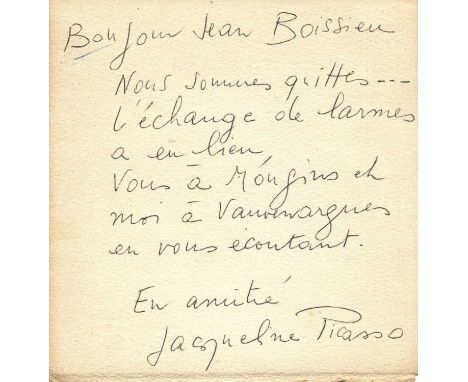 Bonjour Jean Boissieu
Nous sommes quittes---
L'échange de larmes
a eu lieu
Vous à Mougins et
moi à Vauvenargues
en vous écoutant.
En amitié
Jacqueline Picasso